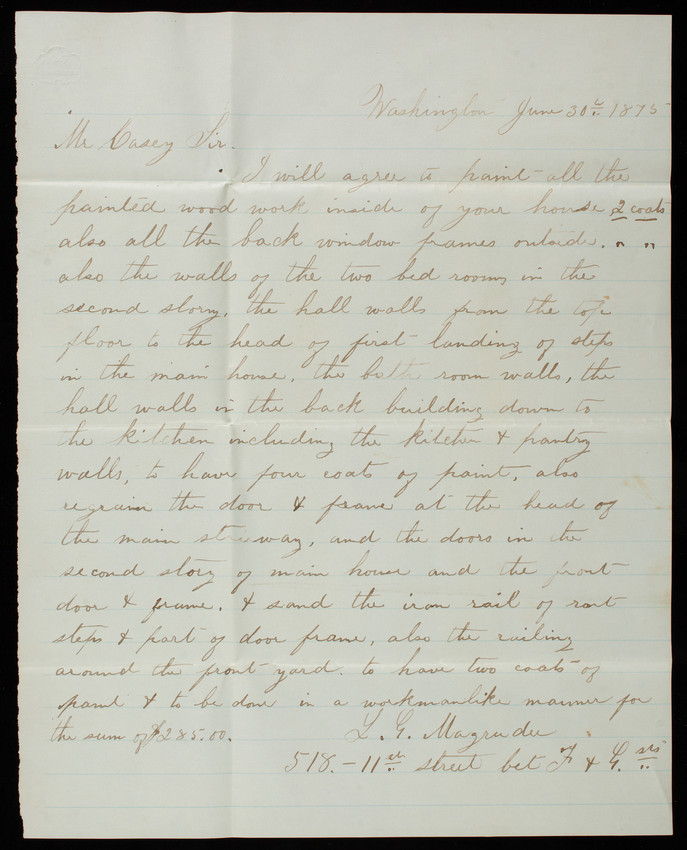 Washington June 30th 1875
Mr Casey Sir.
I will agree to paint all the
painted wood work inside of your house 2 coats
also all the back window frames outside. " "
also the walls of the two bed rooms in the
second story, the hall walls from the top
floor to the head of first landing of steps
in the main house, the bath room walls, the
hall walls in the back building down to
the kitchen including the kitchen & pantry
walls, to have four coats of paint, also
regrain the door & frame at the head of
the main stairway, and the doors in the
second story of main house and the front
door & frame. & sand the iron rail of
steps & part of door frame, also the railing
around the front yard. to have two coats of
paint & to be done in a workmanlike manner for
the sum of $285.00. L. G. Magruder
518.-11th street bet F & G. sts